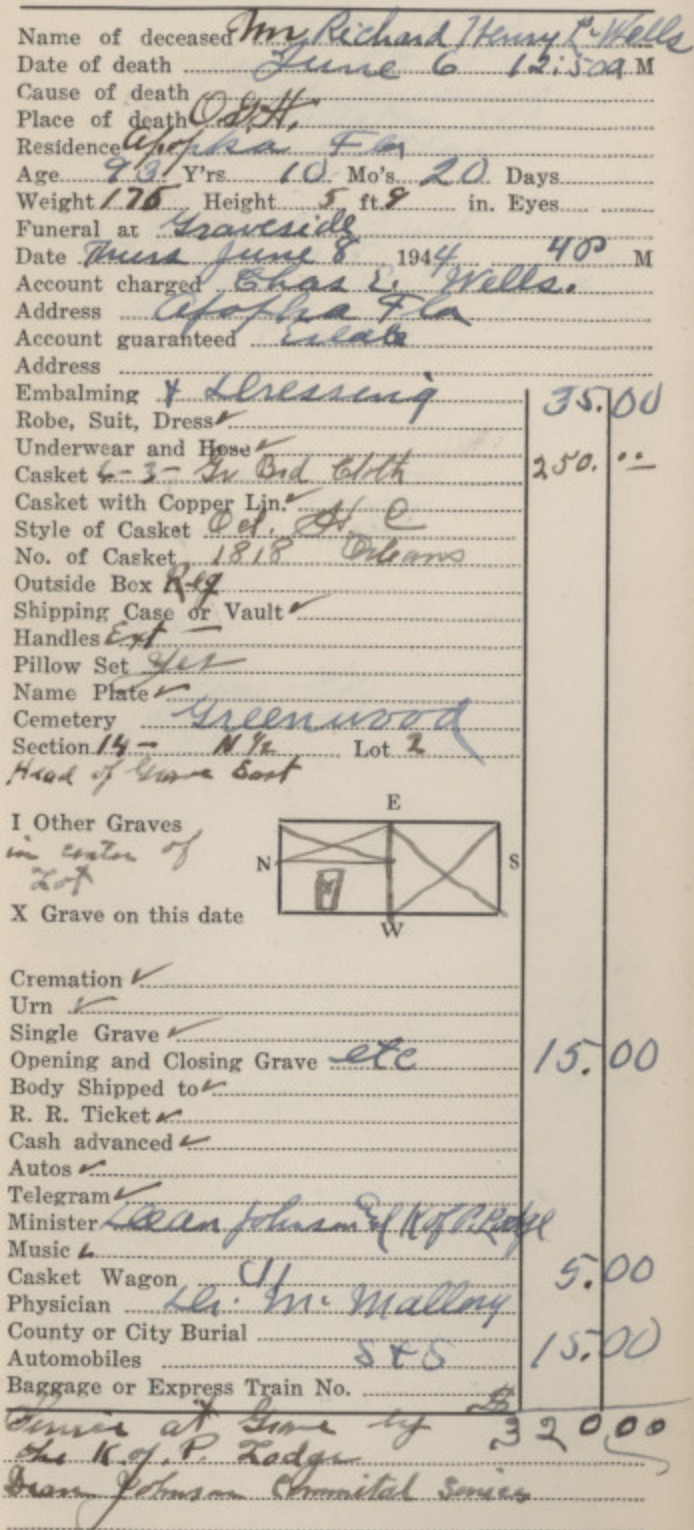 Name of deceased Mr Richard Henry L. Wells
Date of death June 6 12:50 a M
Cause of death
Place of death O.G.H.
Residence Apopka Fla
Age 93 Y'rs 10 Mo's 20 Days
Weight 175 Height 5 ft. 9 in. Eyes
Funeral at Graveside
Date Thurs June 8 1944 4 00 M
Account charged Chas E. Wells.
Address Apopka Fla
Account guaranteed Estate
Address
Embalming & Dressing 35.00
Robe, Suit, Dress ✓
Underwear and Hose ✓
Casket 6-3- Gr Brd Cloth 250.00
Casket with Copper Lin. ✓
Style of Casket Oct. H C
No. of Casket 1818 Orleans
Outside Box Reg
Shipping Case or Vault ✓
Handles Ext —
Pillow Set Yes
Name Plate ✓
Cemetery Greenwood
Section 14 - N ½ Lot 2
Head of Grave East
E
I Other Graves
in center of
N S
Lot
X Grave on this date
W
Cremation ✓
Urn ✓
Single Grave ✓
Opening and Closing Grave etc 15.00
Body Shipped to ✓
R. R. Ticket ✓
Cash advanced ✓
Autos ✓
Telegram ✓
Minister Dean Johnson & K of P. Lodge
Music ✓
Casket Wagon 5.00
Physician Dr. Mc Mallory
County or City Burial
Automobiles S & S 15.00
Baggage or Express Train No.
Service at Grave by $320.00
the K. of. P. Lodge
Dean Johnson Commital Service